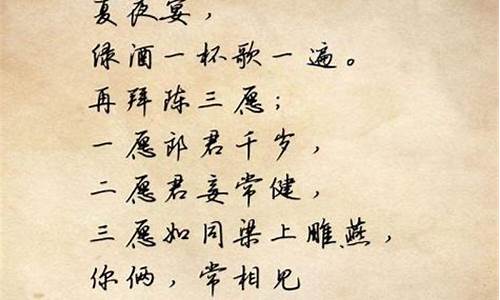 夏夜宴，
绿酒一杯歌一遍。
再拜陈三愿；
一愿郎君千岁，
二愿君妾常健，
三愿如同梁上雎燕，
你俩，常相见